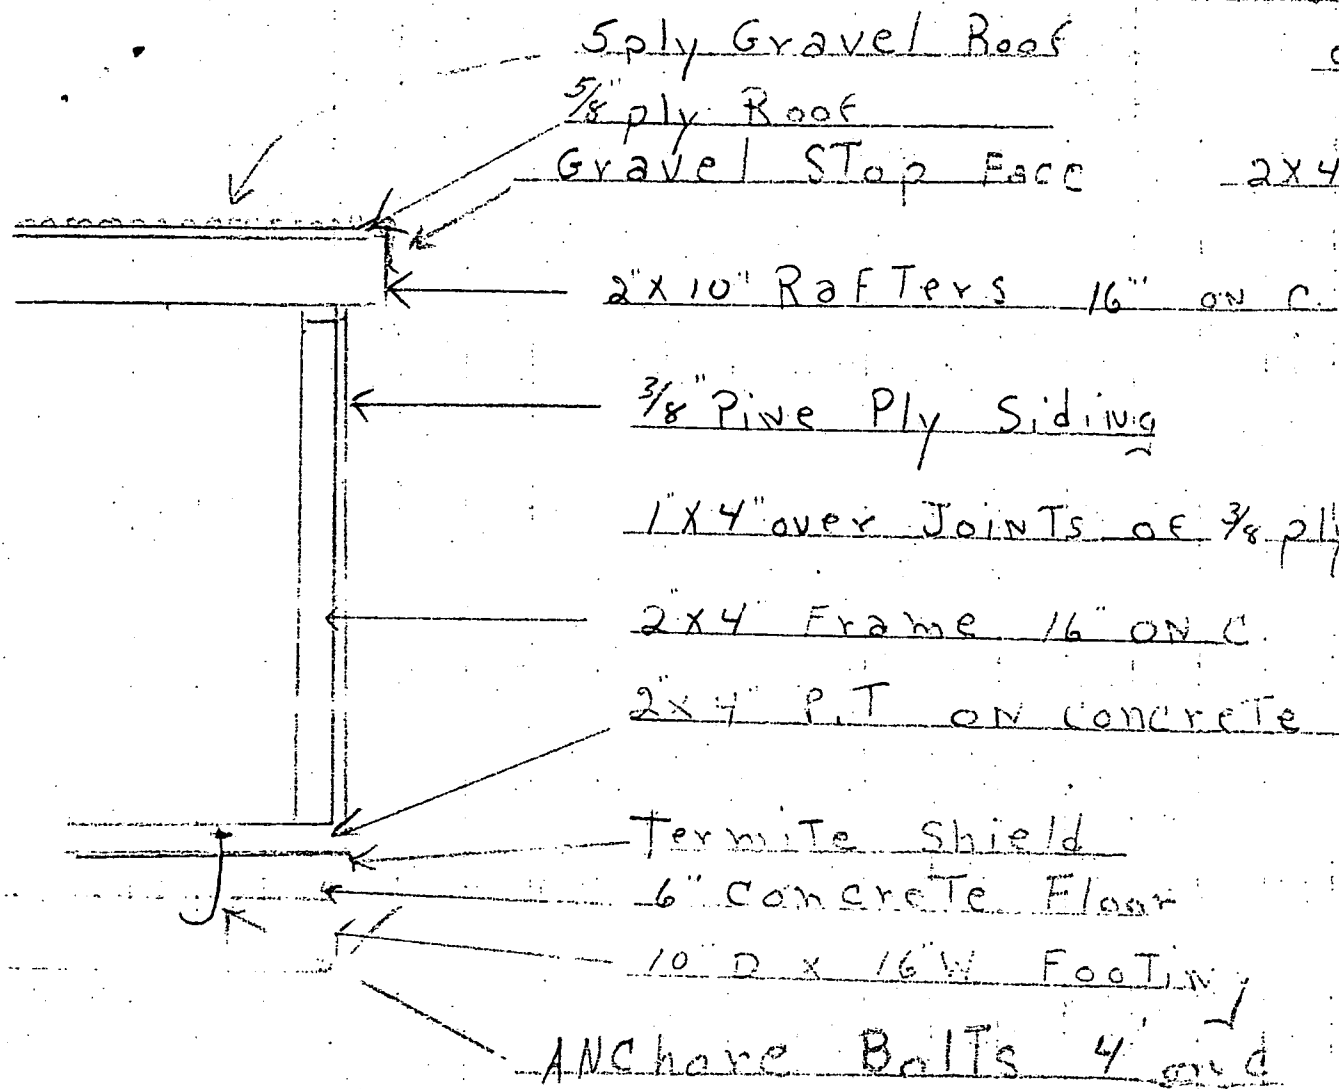 5ply Gravel Roof
5/8" ply Roof
Gravel STop Face
2X4
2"X10" RafTers 16" ON C.
3/8" Pine Ply Siding
1"X4" over JoinTs of 3/8 ply
2"X4" Frame 16" ON C.
2"x4" P.T ON ConcreTe
TermiTe Shield
6" ConcreTe Floor
10" D x 16" W FooTing
ANChore BolTs 4'